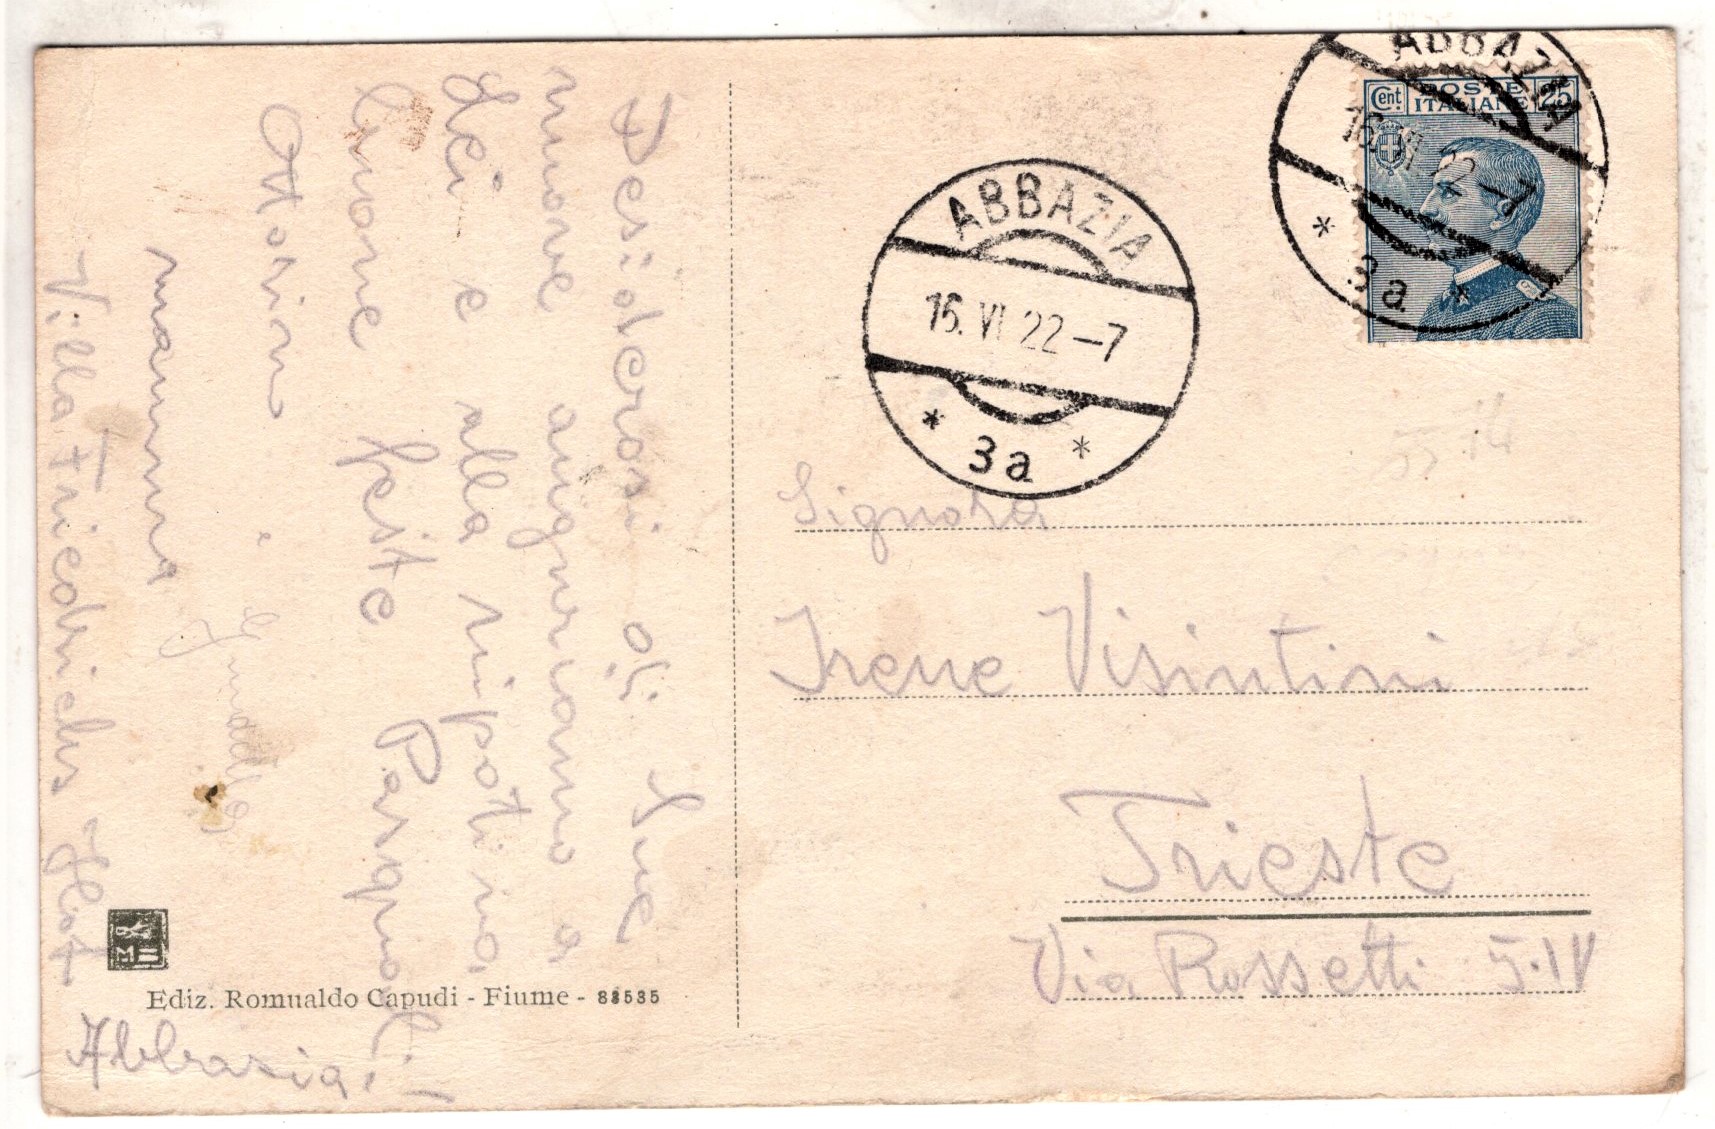 Desiderosi di Sue
nuove auguriamo a
Lei e alla nipotina,
buone feste Pasquali.
Ottorin e
mamma
Villa Friedrichs
Abbazia.
M U
Ediz. Romualdo Capudi - Fiume - 88535
ABBAZIA
16. VI 22 -7
* 3a *
ABBAZIA
16. VI 22 -7
* 3a *
Cent. POSTE ITALIANE 25
Signora
Irene Visintini
Trieste
Via Rossetti 5·IV